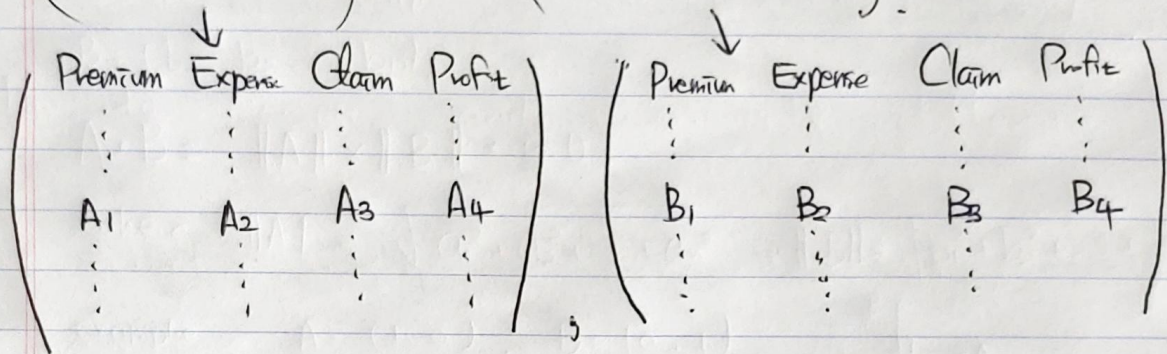 Premium Expense Claim Profit
A1 A2 A3 A4
;
Premium Expense Claim Profit
B1 B2 B3 B4